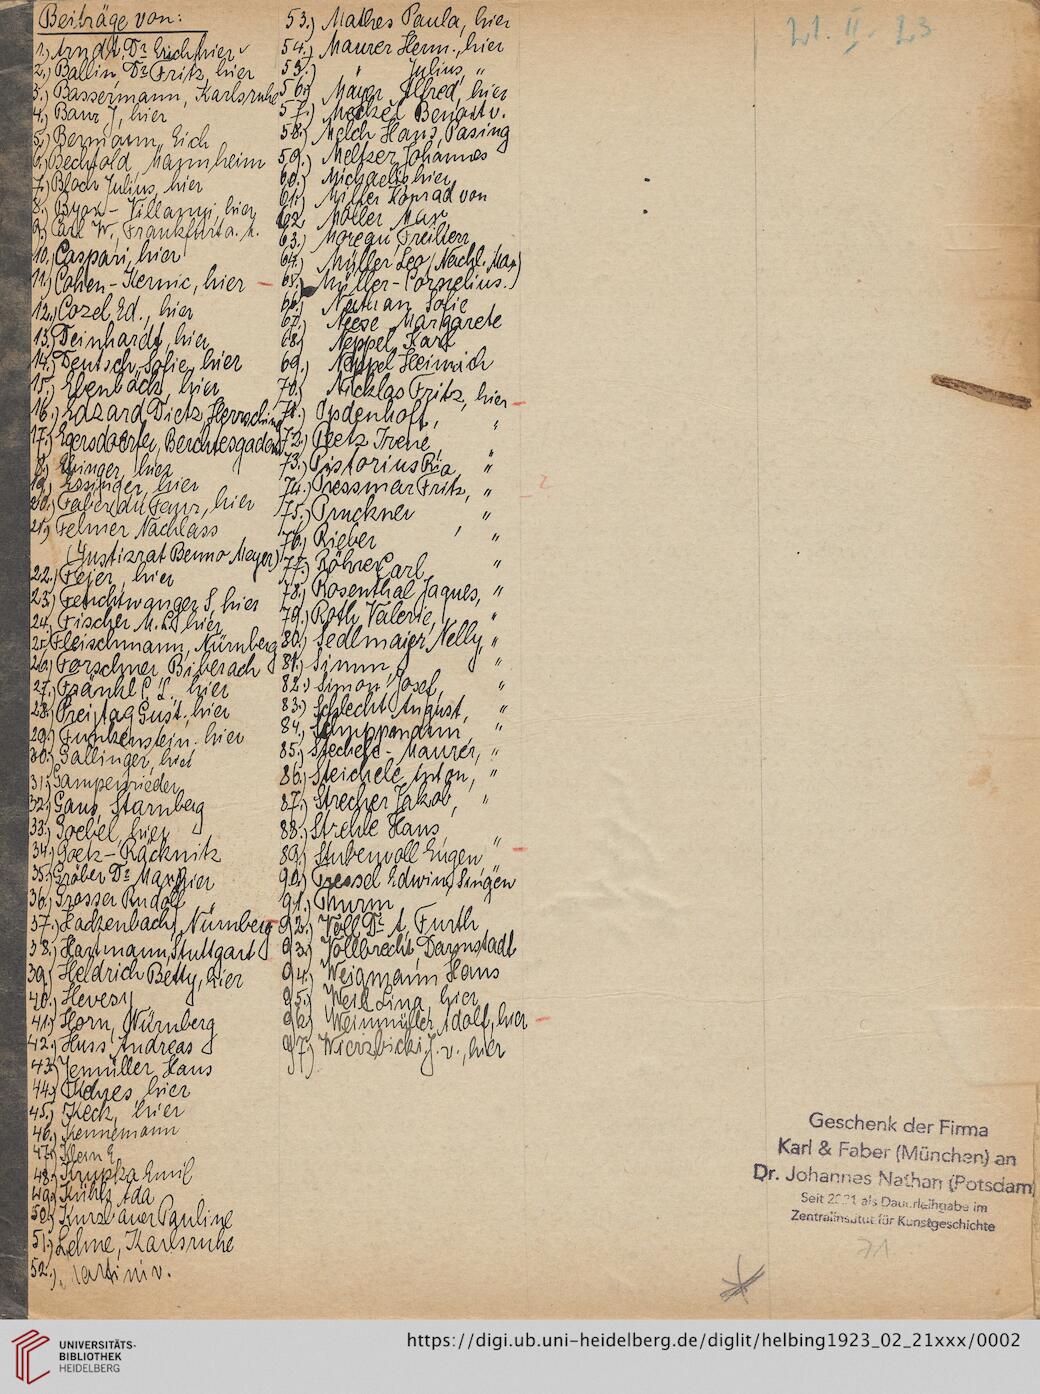 Beiträge von:
1.) Arndt, Dr Erich hier
2.) Ballin, Dr Fritz, hier
3.) Bassermann, Karlsruhe
4.) Baur J, hier
5.) Bermann, Erich
6.) Bechtold Mannheim
7.) Bloch Julius, hier
8.) Villanyi, hier
9.) Carl W., Frankfurt a. M.
10.) Caspari, hier
11.) Cohen - Kernic, hier
12.) Cozel Ed., hier
13.) Deinhardt, hier
14.) Deutsch, Sofie, hier
15.) Ebenböck, hier
16.) Edzard Dietz, Herrsching
17.) Egersdoerfer, Berchtesgaden
18.) Ehinger, hier
19.) Essinger, hier
20.) Faber du Faur, hier
21.) Felmer Nachlass
(Justizrat Benno Meyer)
22.) Feier, hier
23.) Feuchtwanger S, hier
24.) Fischer M. hier
25.) Fleischmann, Nürnberg
26.) Forschner, Biberach
27.) Fränkl hier
28.) Freijtag Gust., hier
29.) Funkenstein, hier
30.) Gallinger, hier
31.) Gampenrieder
32.) Gans, Starnberg
33.) Goebel, hier
34.) Goetz - Räcknitz
35.) Gröber Dr Max, hier
36.) Grosser Rudolf
37.) Hadzenbach, Nürnberg
38.) Hartmann, Stuttgart
39.) Heldrich Betty, hier
40.) Hevesy
41.) Horn, Nürnberg
42.) Huss Andreas
43.) Jenmüller Hans
44.) hier
45.) Keck, hier
46.) Kennemann
47.) Klein E
48.) Kruppka Emil
49.) Kühles Ada
50.) Kurzbauer Pauline
51.) Lehne, Karlsruhe
52.) Martini v.
53.) Mathes Paula, hier
54.) Maurer Herm., hier
55.) " Julius, "
56.) Mayer Alfred, hier
57.) Meckel Benast v.
58.) Melch Hans, Pasing
59.) Meltzer Johannes
60.) Michaelis hier
61.) Miller Konrad von
62.) Möller Max
63.) Moreau Freiherr
64.) Müller Leo (Nachl. Max)
65.) Müller - Cornelius.)
66.) Nathan Sofie
67.) Neese Margarete
68.) Neppel Karl
69.) Neppel Heinrich
70.) Nicklas Fritz, hier
71.) Opdenhoft, "
72.) Peetz Irene, "
73.) Pistorius Ria, "
74.) Pressmar Fritz, "
75.) Pruckner "
76.) Rieber , "
77.) Röhrer Carl, "
78.) Rosenthal Jaques, "
79.) Roth Valerie, "
80.) Sedlmaier Nelly, "
81.) Simm, "
82.) Simon Josef, "
83.) Schlecht August, "
84.) Schuppmann, "
85.) Stechele - Maurer, "
86.) Steichele Anton, "
87.) Strecher Jakob, "
88.) Strehle Hans,
89.) Stubenvoll Eugen "
90.) Tressel Edwin, Singen
91.) Thurm
92.) Voll Dr A. Furth
93.) Vollbrecht, Darmstadt
94.) Weigmann Hans
95.) Weil Lina, hier
96.) Weinmüller Adolf, hier
97.) Wierzbicki J. v., hier
21. II. 23
Geschenk der Firma
Karl & Faber (München) an
Dr. Johannes Nathan (Potsdam)
Seit 2021 als Dauerleihgabe im
Zentralinstitut für Kunstgeschichte
71
UNIVERSITÄTS-
BIBLIOTHEK
HEIDELBERG
https://digi.ub.uni-heidelberg.de/diglit/helbing1923_02_21xxx/0002